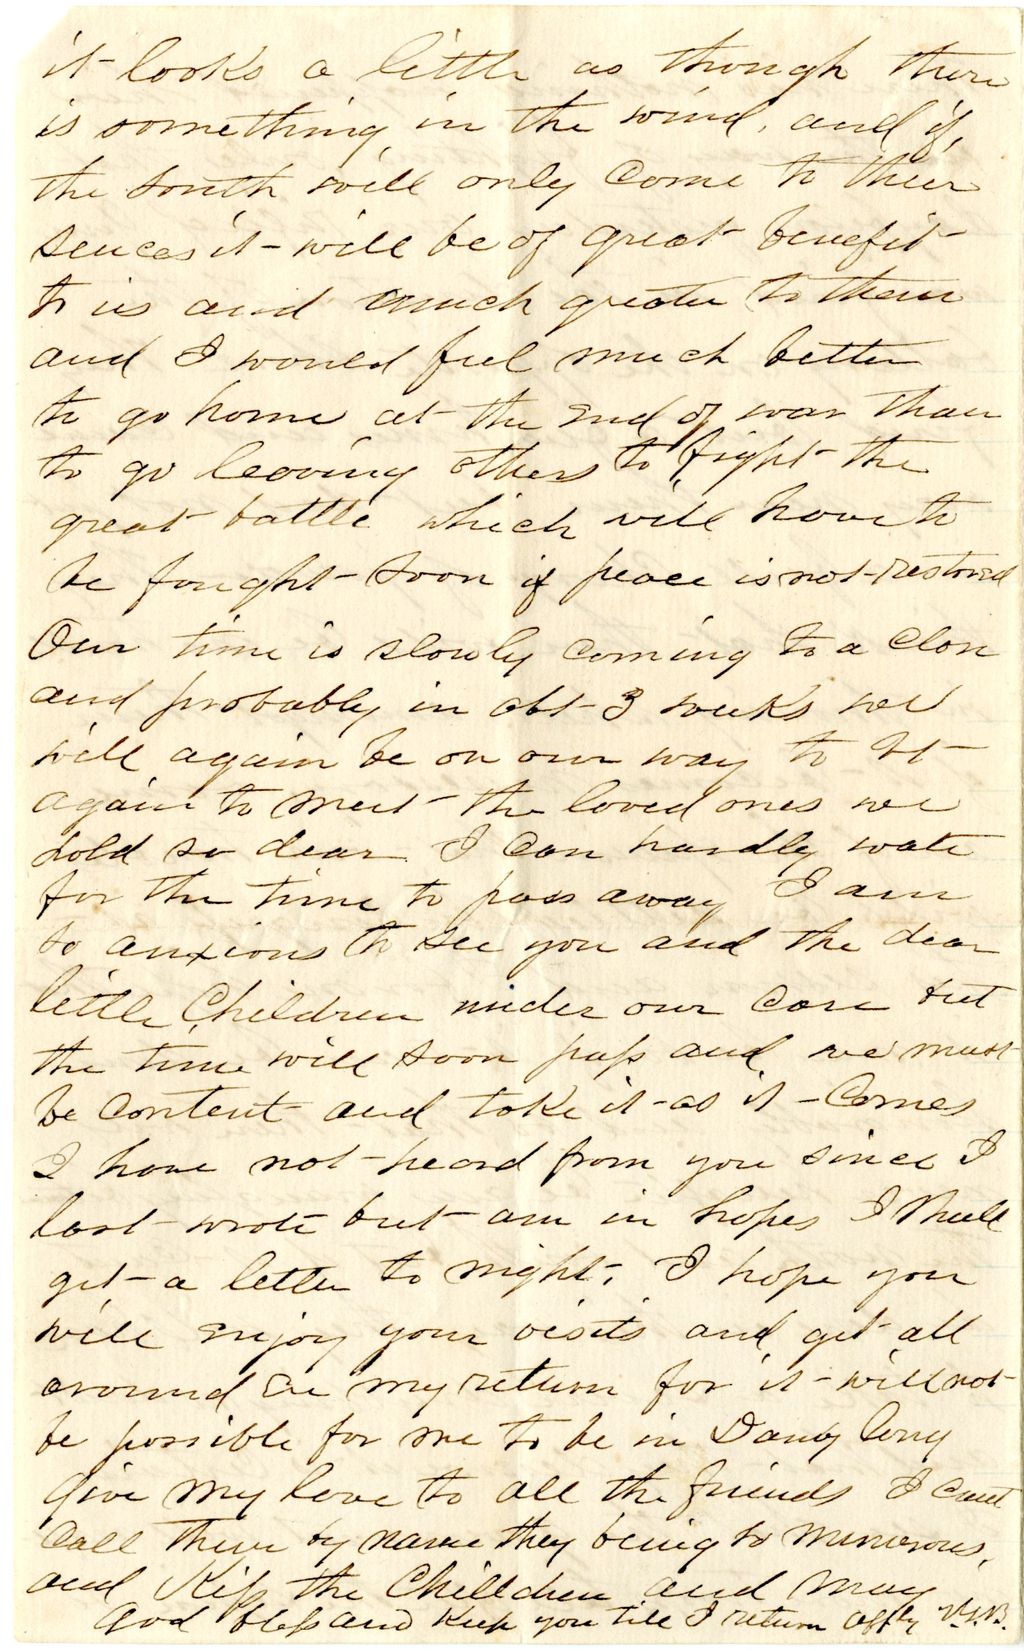 it looks a little as though there
is something in the wind, and if,
the south will only come to their
sences it will be of great benefit
to us and much greater to them
and I would feel much better
to go home at the end of war than
to go leaving others to fight the
great battle which will have to
be fought soon if peace is not restored
Our time is slowly coming to a close
and probably in abt 3 weeks we
will again be on our way to Vt
again to meet the loved ones we
hold so dear. I can hardly wate
for the time to pass away I am
so anxious to see you and the dear
little Children under our care but
the time will soon pass and we must
be content and take it as it comes
I have not heard from you since I
last wrote but am in hopes I shall
get a letter to night. I hope you
will enjoy your visits and get all
around ere my return for it will not
be possible for me to be in Danby long
Give my love to all the friends I cant
Call them by name they being to numerous,
and Kiss the Children and may
God bless and keep you till I return Affly